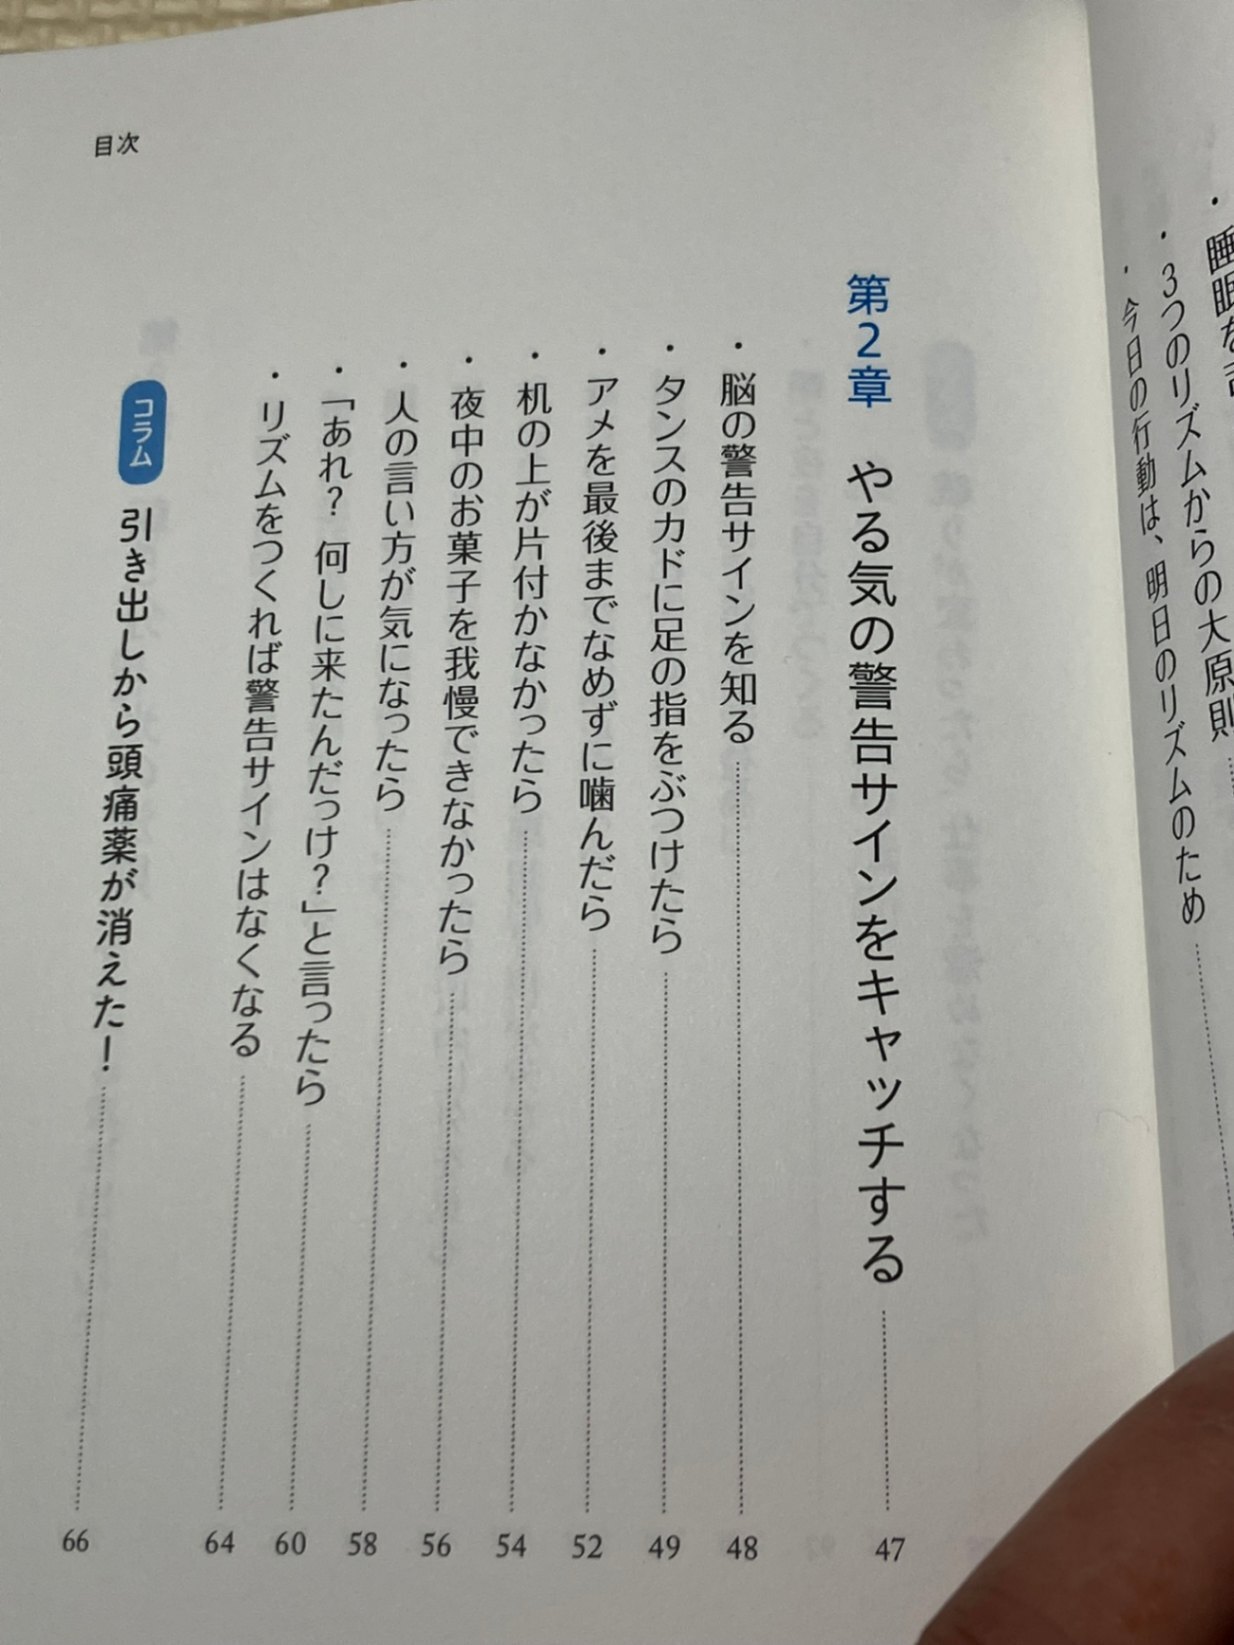 ・3つのリズムからの大原則
・今日の行動は、明日のリズムのため
目次
第2章 やる気の警告サインをキャッチする 47
・脳の警告サインを知る 48
・タンスのカドに足の指をぶつけたら 49
・アメを最後までなめずに噛んだら 52
・机の上が片付かなかったら 54
・夜中のお菓子を我慢できなかったら 56
・人の言い方が気になったら 58
・「あれ? 何しに来たんだっけ?」と言ったら 60
・リズムをつくれば警告サインはなくなる 64
コラム 引き出しから頭痛薬が消えた! 66